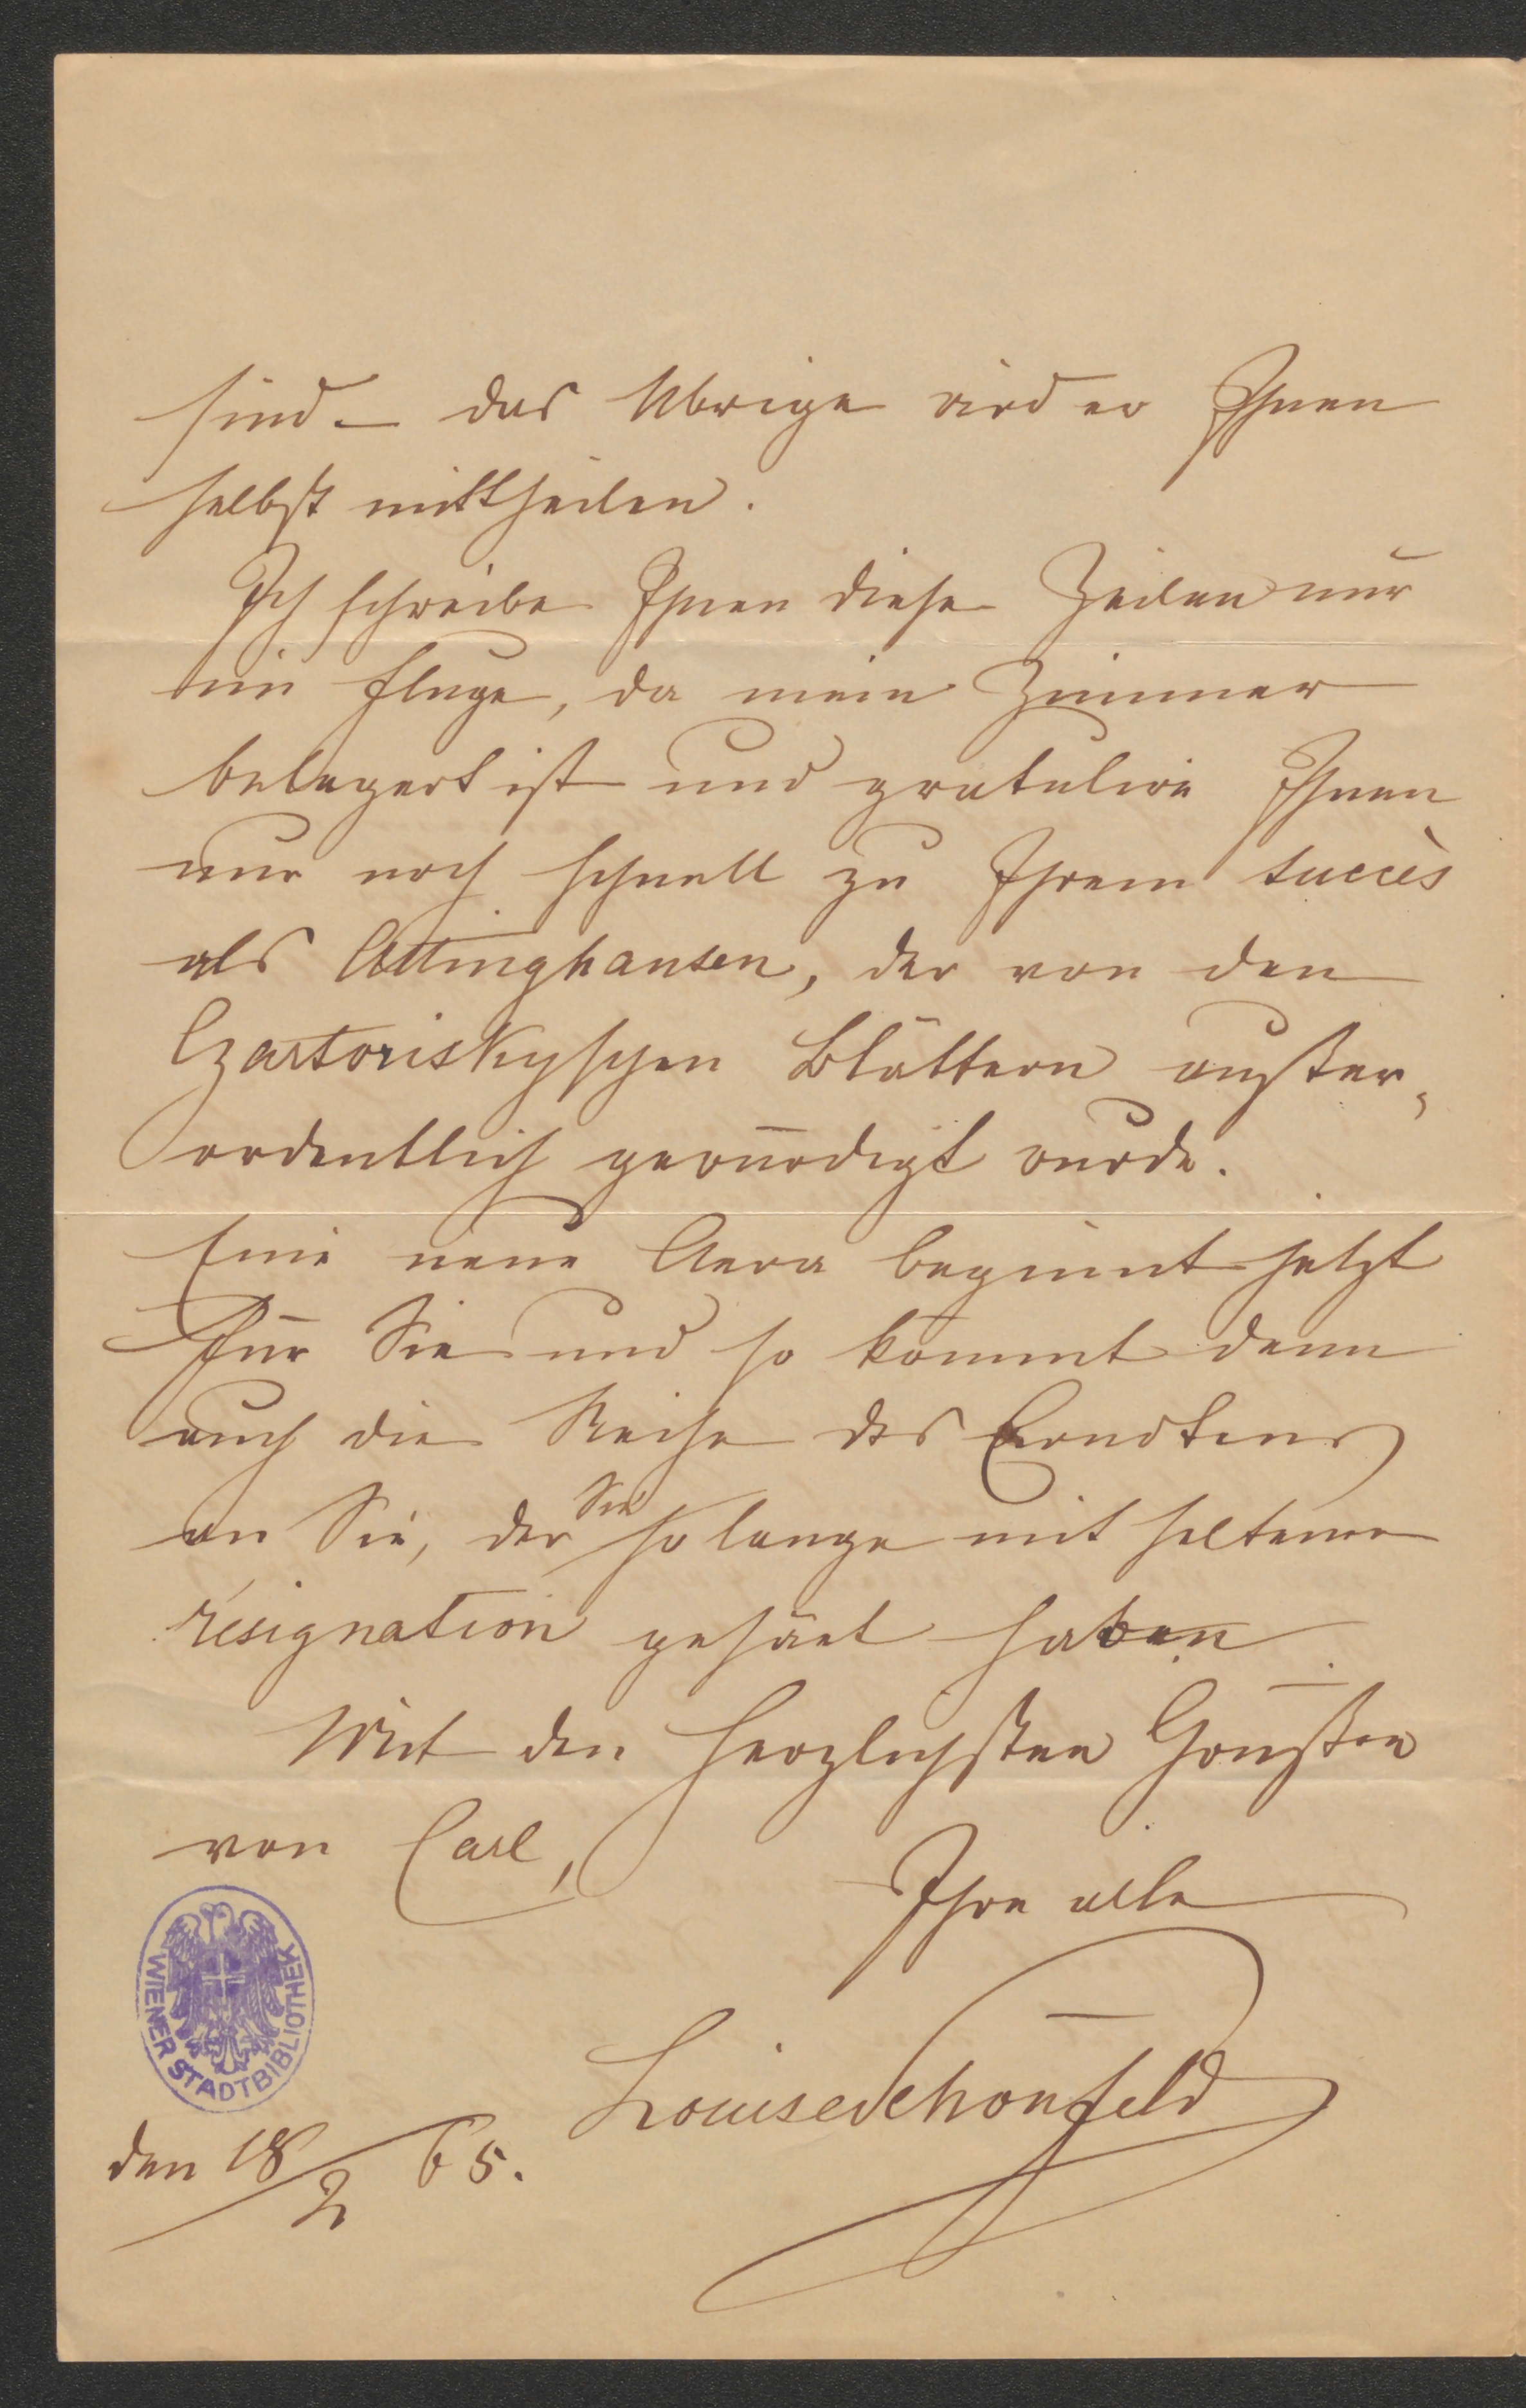 sind – das Übrige wird er Ihnen
selbst mittheilen.
Ich schreibe Ihnen diese Zeilen nur
im Fluge, da mein Zimmer
belagert ist und gratulire Ihnen
nur noch schnell zu Ihrem succès
als Attinghausen, der von den
Czartoriskyschen Blättern außer„
ordentlich gewürdigt wurde.
Eine neue Aera beginnt jetzt
für Sie und so kommt denn
auch die Reihe des Erndtens
an Sie, der Sie so lange mit seltener
résignation gesäet haben.
Mit den herzlichsten Grüßen
von Carl,
Ihre alte
Louise Schönfeld
WIENER STADTBIBLIOTHEK
den 18/2 65.